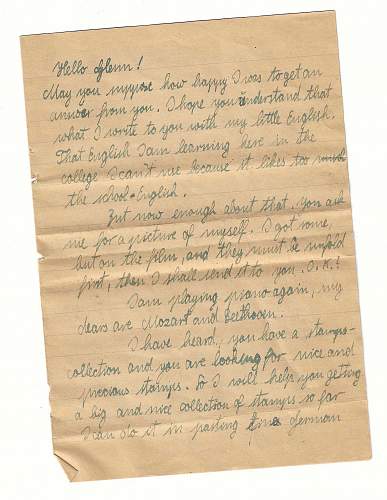 Hello Glenn!
May you suppose how happy I was to get an
answer from you. I hope you understand that
what I write to you with my little English.
That English I am learning here in the
college I can't use because it likes too much
the school-English.
But now enough about that. You ask
me for a picture of myself. I got some,
but on the film, and they must be unfold
first, then I shall send it to you. O.K.!
I am playing piano again, my
dears are Mozart and Beethoven.
I have heard, you have a stamps-
collection and you are looking for nice and
precious stamps. So I will help you getting
a big and nice collection of stamps so far
I can do it in pasting German